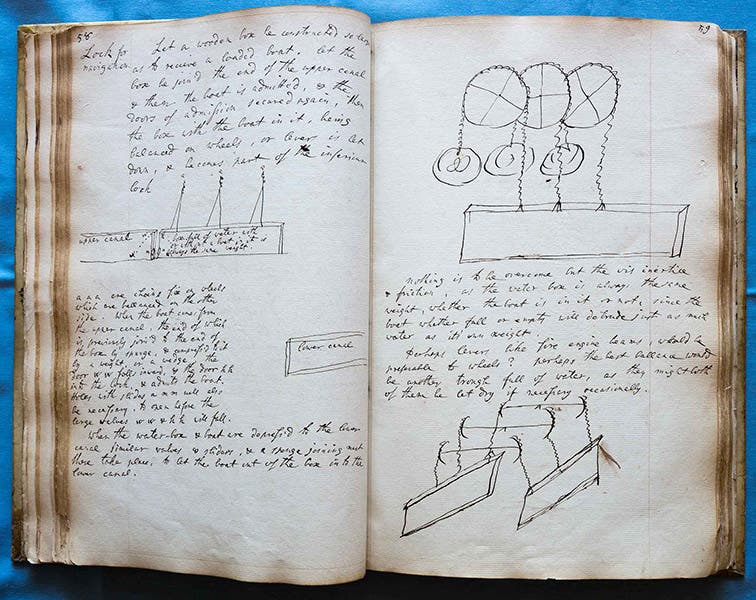 58
Lock for
navigation
Let a wooden box be constructed so large
as to receive a loaded boat. let the
box be join'd the end of the upper canal
& then the boat is admitted, & the
doors of admission secured again. Then
the box with the boat in it, being
balanced on wheels, or lever is let
down, & becomes part of the inferiour
lock
a a a
upper canal
box full of water with
or without a boat, it is
always the same weight
a a a are chains fix'd on wheels
which are ballanced on the other
side. When the boat comes from
the upper canal, the end of which
is previously join'd to the end of
the box by spunge, & compress'd to it
by a weight, or a wedge, the
door w w falls inward, & the door h h
into the lock, & admits the boat.
Holes with slides m m m will also
be necessary, to open before the
large valves w w & h h will fall.
When the water-box & boat are depress'd to the lower
canal similar valves & sliders, & a spunge joining must
there take place, to let the boat out of the box in to the
lower canal.
lower canal
59
nothing is to be overcome but the vis inertiae
& friction, as the water box is always the same
weight, whether the boat is in it or not, since the
boat whether full or empty will detrude just as much
water as its own weight.
Perhaps levers like fire engine beams, would be
preferable to wheels? perhaps the best ballance would
be another trough full of water, as they might both
of them be let dry if necessary occasionally.